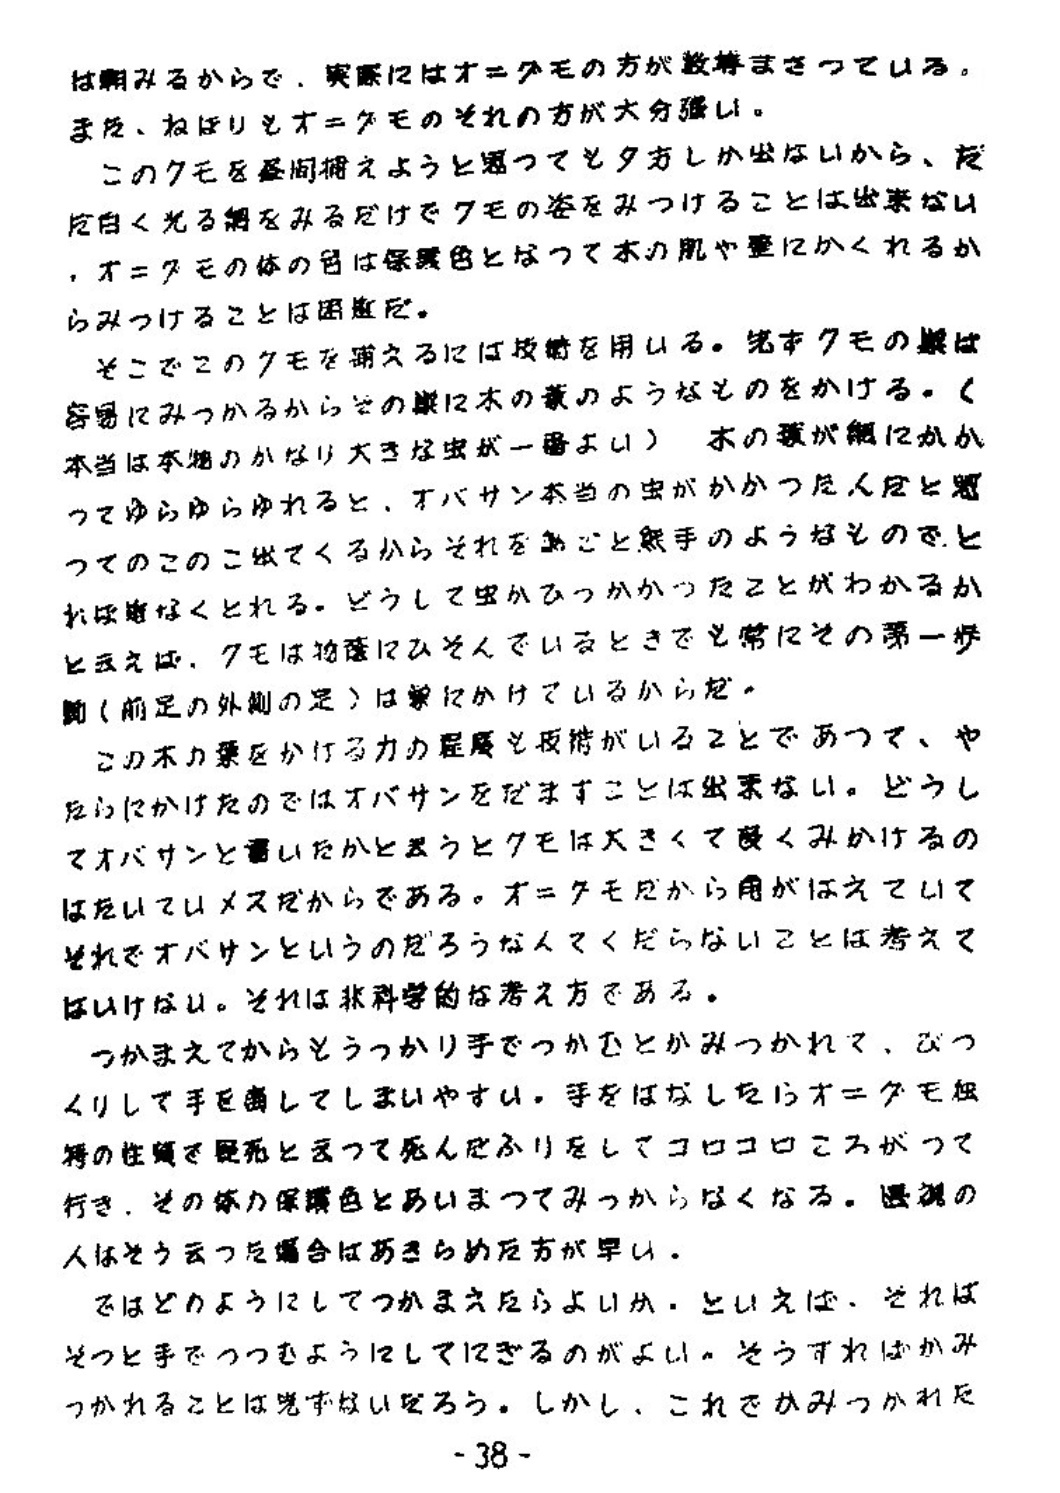 は頼みるからで、実際にはオニグモの方が数等まさつている。
また、ねばりもオニグモのそれの方が大分強い。
このクモを昼間捕えようと思つても夕方しか出ないから、だ
だ白く光る網をみるだけでクモの姿をみつけることは出来ない
、オニグモの体の色は保護色となつて木の肌や壁にかくれるか
らみつけることは困難だ。
そこでこのクモを捕えるには技術を用いる。先ずクモの巣は
容易にみつかるからその巣に木の葉のようなものをかける。（
本当は本物のかなり大きな虫が一番よい）　木の葉が網にかか
つてゆらゆらゆれると、オバサン本当の虫がかかつたんだと思
つてのこのこ出てくるからそれをあごと熊手のようなもので、と
れば難なくとれる。どうして虫がひつかかつたことがわかるか
と云えば、クモは物蔭にひそんでいるときでも常にその第一歩
脚（前足の外側の足）は巣にかけているからだ。
この木の葉をかける力の程度も技術がいることであつて、や
たらにかけたのではオバサンをだますことは出来ない。どうし
てオバサンと書いたかと云うとクモは大きくて良くみかけるの
はたいていメスだからである。オニグモだから角がはえていて
それでオバサンというのだろうなんてくだらないことは考えて
はいけない。それは非科学的な考え方である。
つかまえてからもうつかり手でつかむとかみつかれて、びつ
くりして手を離してしまいやすい。手をはなしたらオニグモ独
特の性質で仮死と云つて死んだふりをしてコロコロころがつて
行き、その体の保護色とあいまつてみつからなくなる。近視の
人はそう云つた場合はあきらめた方が早い。
ではどのようにしてつかまえたらよいか。といえば、それば
そつと手でつつむようにしてにぎるのがよい。そうすればかみ
つかれることは先ずないだろう。しかし、これでかみつかれた
-38-